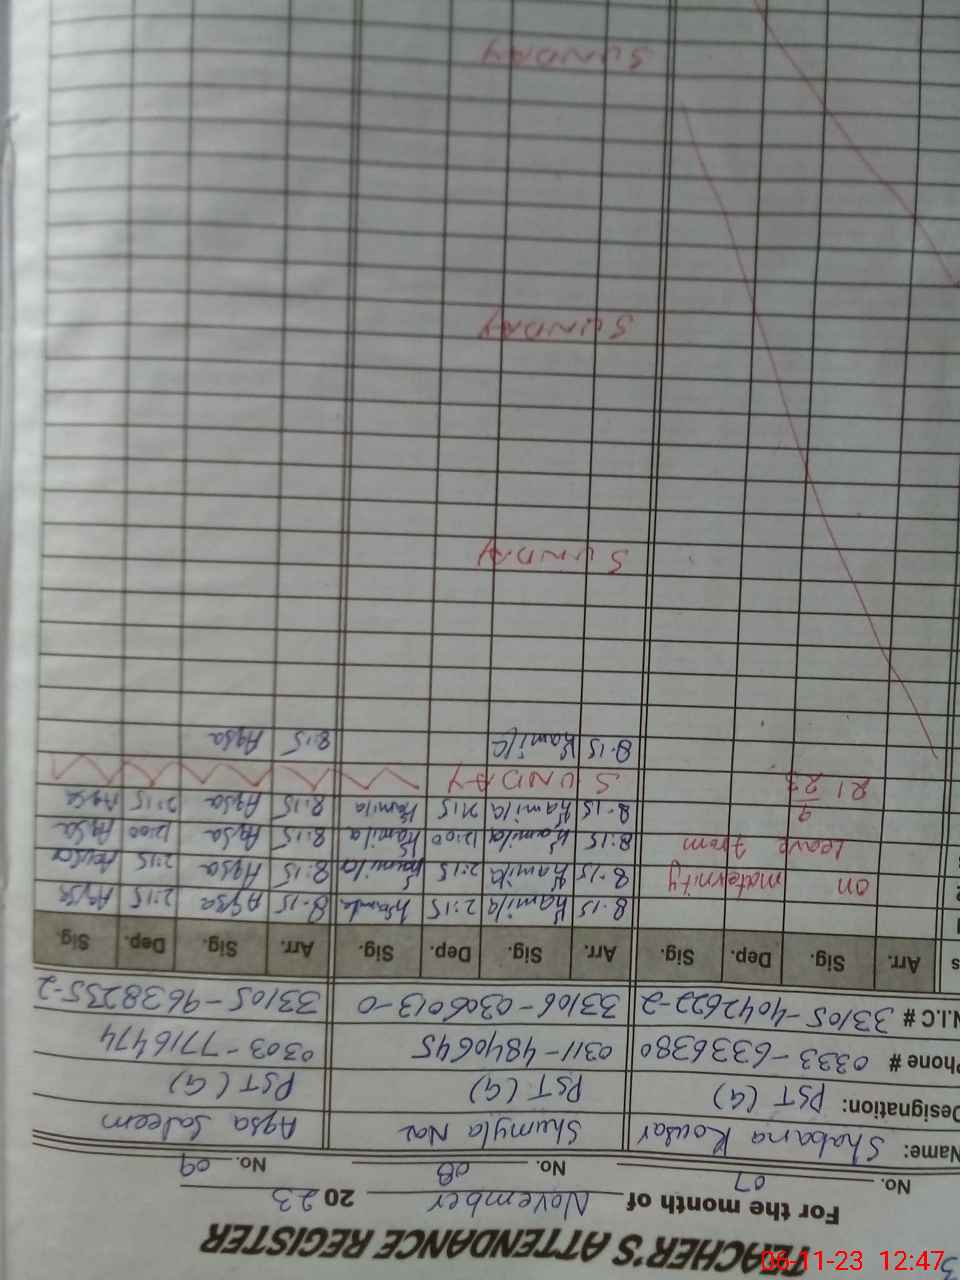 TEACHER'S ATTENDANCE REGISTER
For the month of November 2023
No. 07 No. 08 No. 09
Name: Shabana Kousar Shumyla Naz Aqsa Saleem
Designation: PST (G) PST (G) PST (G)
Phone # 0333-6336380 0311-4840645 0303-7716474
N.I.C # 33105-4042622-2 33106-0306013-0 33105-9638235-2
Arr. Sig. Dep. Sig. Arr. Sig. Dep. Sig. Arr. Sig. Dep. Sig.
8.15 Kamila 2:15 8.15 Aqsa 2:15 Aqsa
on maternity 8.15 Kamila 2:15 Kamila 8:15 Aqsa 2:15
Leave from 8:15 Kamila 12:00 Kamila 8:15 Aqsa 12:00 Aqsa
9 8.15 Kamila 2:15 Kamila 8:15 Aqsa 2:15 Aqsa
21 23 SUNDAY
8.15 Kamila 8:15 Aqsa
SUNDAY
SUNDAY
SUNDAY
06-11-23 12:47